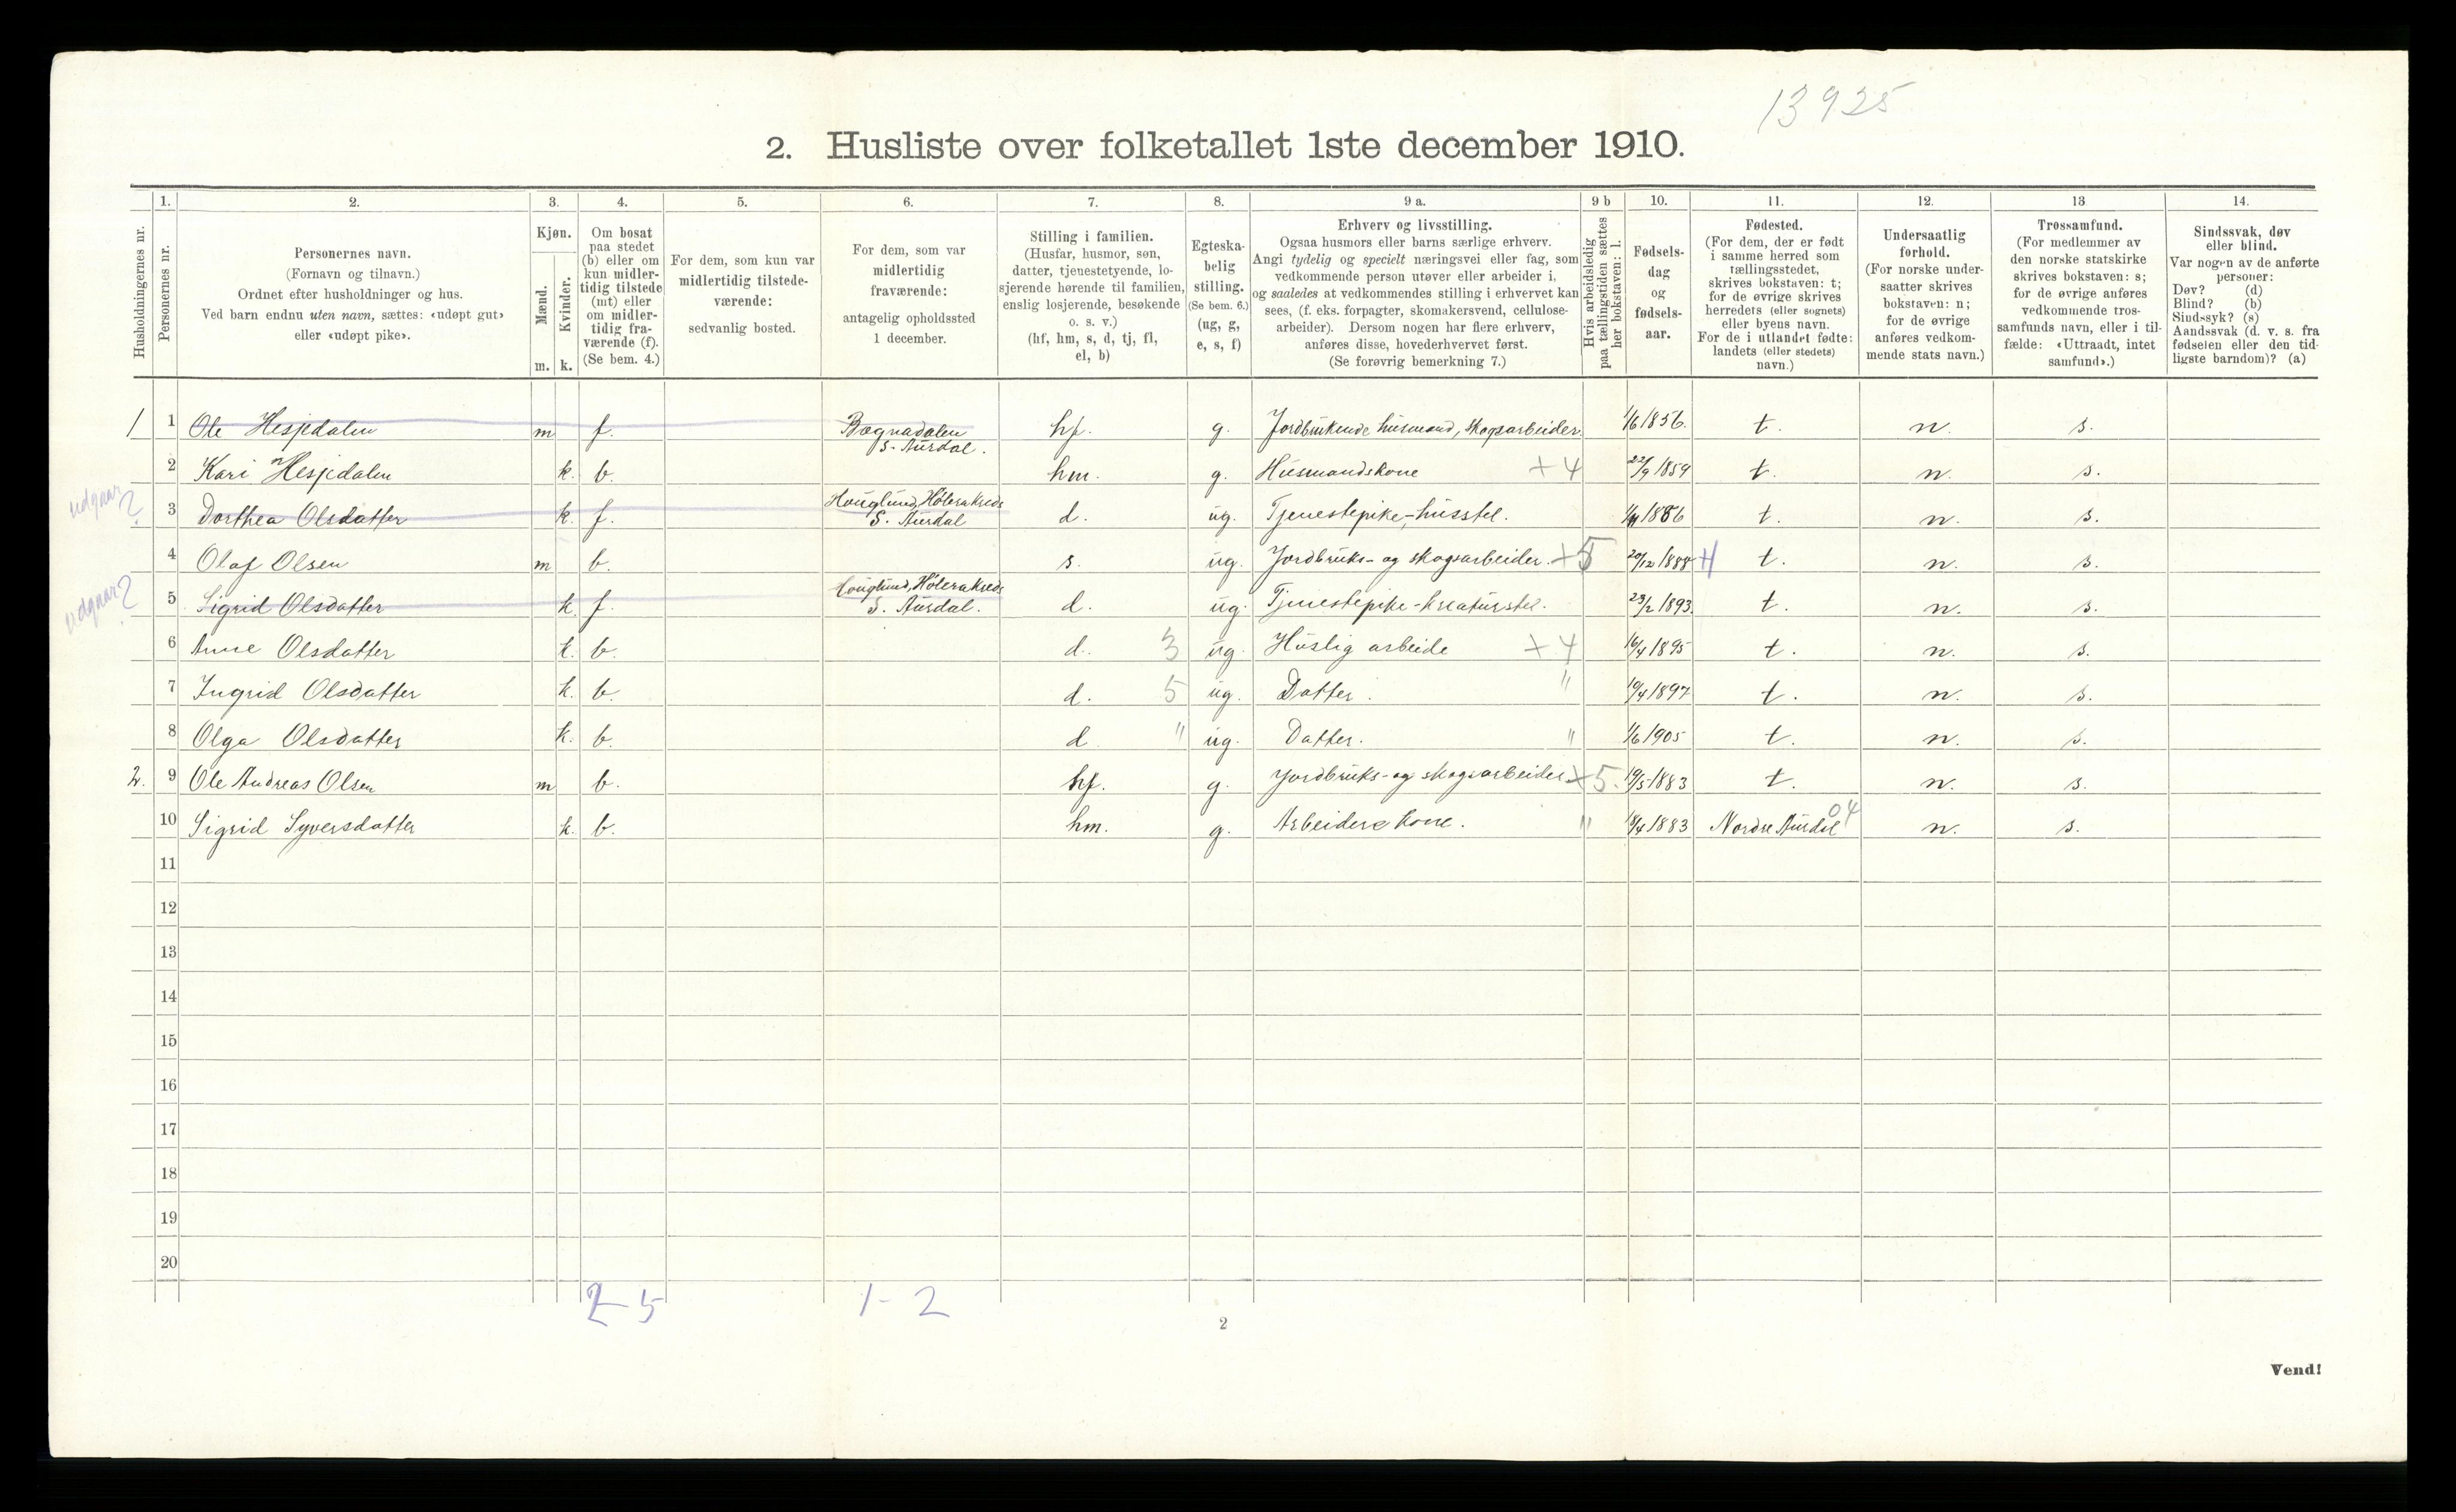 13925
2. Husliste over folketallet 1ste december 1910.
Husholdningernes nr.
1.
Personernes nr.
2.
Personernes navn.
(Fornavn og tilnavn.)
Ordnet efter husholdninger og hus.
Ved barn endnu uten navn, sættes: «udøpt gut»
eller «udøpt pike».
3.
Kjøn.
Mænd.
Kvinder.
m.
k.
4.
Om bosat
paa stedet
(b) eller om
kun midler-
tidig tilstede
(mt) eller
om midler-
tidig fra-
værende (f).
(Se bem. 4.)
5.
For dem, som kun var
midlertidig tilstede-
værende:
sedvanlig bosted.
6.
For dem, som var
midlertidig
fraværende:
antagelig opholdssted
1 december.
7.
Stilling i familien.
(Husfar, husmor, søn,
datter, tjenestetyende, lo-
sjerende hørende til familien,
enslig losjerende, besøkende
o. s. v.)
(hf, hm, s, d, tj, fl,
el, b)
8.
Egteska-
belig
stilling.
(Se bem. 6.)
(ug, g,
e, s, f)
9 a.
Erhverv og livsstilling.
Ogsaa husmors eller barns særlige erhverv.
Angi tydelig og specielt næringsvei eller fag, som
vedkommende person utøver eller arbeider i,
og saaledes at vedkommendes stilling i erhvervet kan
sees, (f. eks. forpagter, skomakersvend, cellulose-
arbeider). Dersom nogen har flere erhverv,
anføres disse, hovederhvervet først.
(Se forøvrig bemerkning 7.)
9 b
Hvis arbeidsledig
paa tællingstiden sættes
her bokstaven: l.
10.
Fødsels-
dag
og
fødsels-
aar.
11.
Fødested.
(For dem, der er født
i samme herred som
tællingsstedet,
skrives bokstaven: t;
for de øvrige skrives
herredets (eller sognets)
eller byens navn.
For de i utlandet fødte:
landets (eller stedets)
navn.)
12.
Undersaatlig
forhold.
(For norske under-
saatter skrives
bokstaven: n;
for de øvrige
anføres vedkom-
mende stats navn.)
13
Trossamfund.
(For medlemmer av
den norske statskirke
skrives bokstaven: s;
for de øvrige anføres
vedkommende tros-
samfunds navn, eller i til-
fælde: «Uttraadt, intet
samfund».)
14.
Sindssvak, døv
eller blind.
Var nogen av de anførte
personer:
Døv? (d)
Blind? (b)
Sindssyk? (s)
Aandssvak (d. v. s. fra
fødselen eller den tid-
ligste barndom)? (a)
1 1 Ole Hesjedalen m f. Bægnadalen S. Aurdal. hf. g. Jordbrukende husmand, skogsarbeider. 1/6 1856. t. n. s.
2 Kari Hesjedalen k. b. hm. g. Husmandskone +4 22/9 1859 t. n. s.
udgaar? 3 Dorthea Olsdatter k. f. Houglund, Hølerakreds S. Aurdal d. ug. Tjenestepike, husstel. t. n. s.
4 Olaf Olsen m b. s. ug. Jordbruks- og skogsarbeider. +5 20/12 1888 t. n. s.
udgaar? 5 Sigrid Olsdatter k. f. Houglund, Hølerakreds S. Aurdal. d. ug. Tjenestepike - kreaturstel. 23/2 1893. t. n. s.
6 Anne Olsdatter k. b. d. 3 ug. Huslig arbeide +4 16/4 1895 t. n. s.
7 Ingrid Olsdatter k. b. d. 5 ug. Datter. " 19/4 1897 t. n. s.
8 Olga Olsdatter k. b. d " ug. Datter. " 1/6 1905 t. n. s.
2. 9 Ole Andreas Olsen m b. hf. g. Jordbruks- og skogsarbeider +5. 19/5 1883 t. n. s.
10 Sigrid Syversdatter k. b. hm. g. Arbeiders kone. " 18/4 1883 Nordre Aurdal 04 n. s.
11
12
13
14
15
16
17
18
19
20
2-5 1-2
2
Vend!